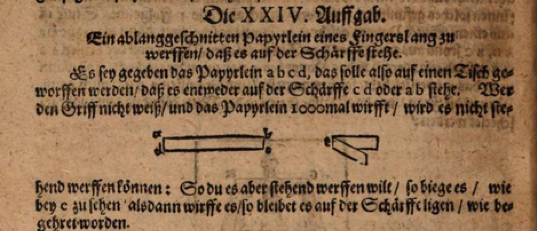 Die XXIV. Auffgab.
Ein ablanggeschnitten Papyrlein eines Fingers lang zu
werffen/ daß es auf der Schärffe stehe.
Es sey gegeben das Papyrlein a b c d, das solle also auf einen Tisch ge-
worffen werden/ daß es entweder auf der Schärffe c d oder a b stehe. Wer
den Griff nicht weiß/ und das Papyrlein 1000mal wirfft / wird es nicht ste-
a b e
hend werffen können: So du es aber stehend werffen wilt / so biege es / wie
bey c zu sehen alsdann wirffe es/ so bleibet es auf der Schärffe ligen / wie be-
gehret worden.